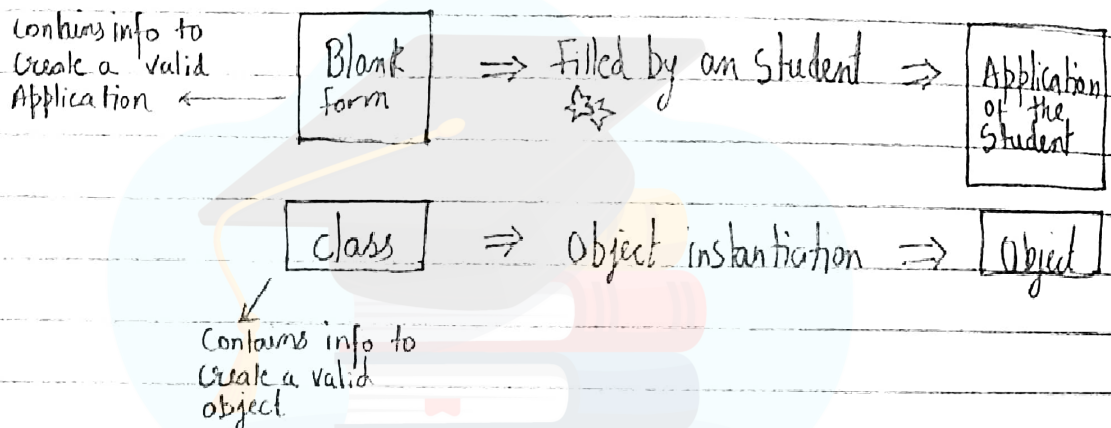 Contains info to
Create a valid
Application
Blank
form
⇒ Filled by an Student ⇒
Application
of the
Student
class ⇒ Object instantiation ⇒ Object
Contains info to
Create a valid
object